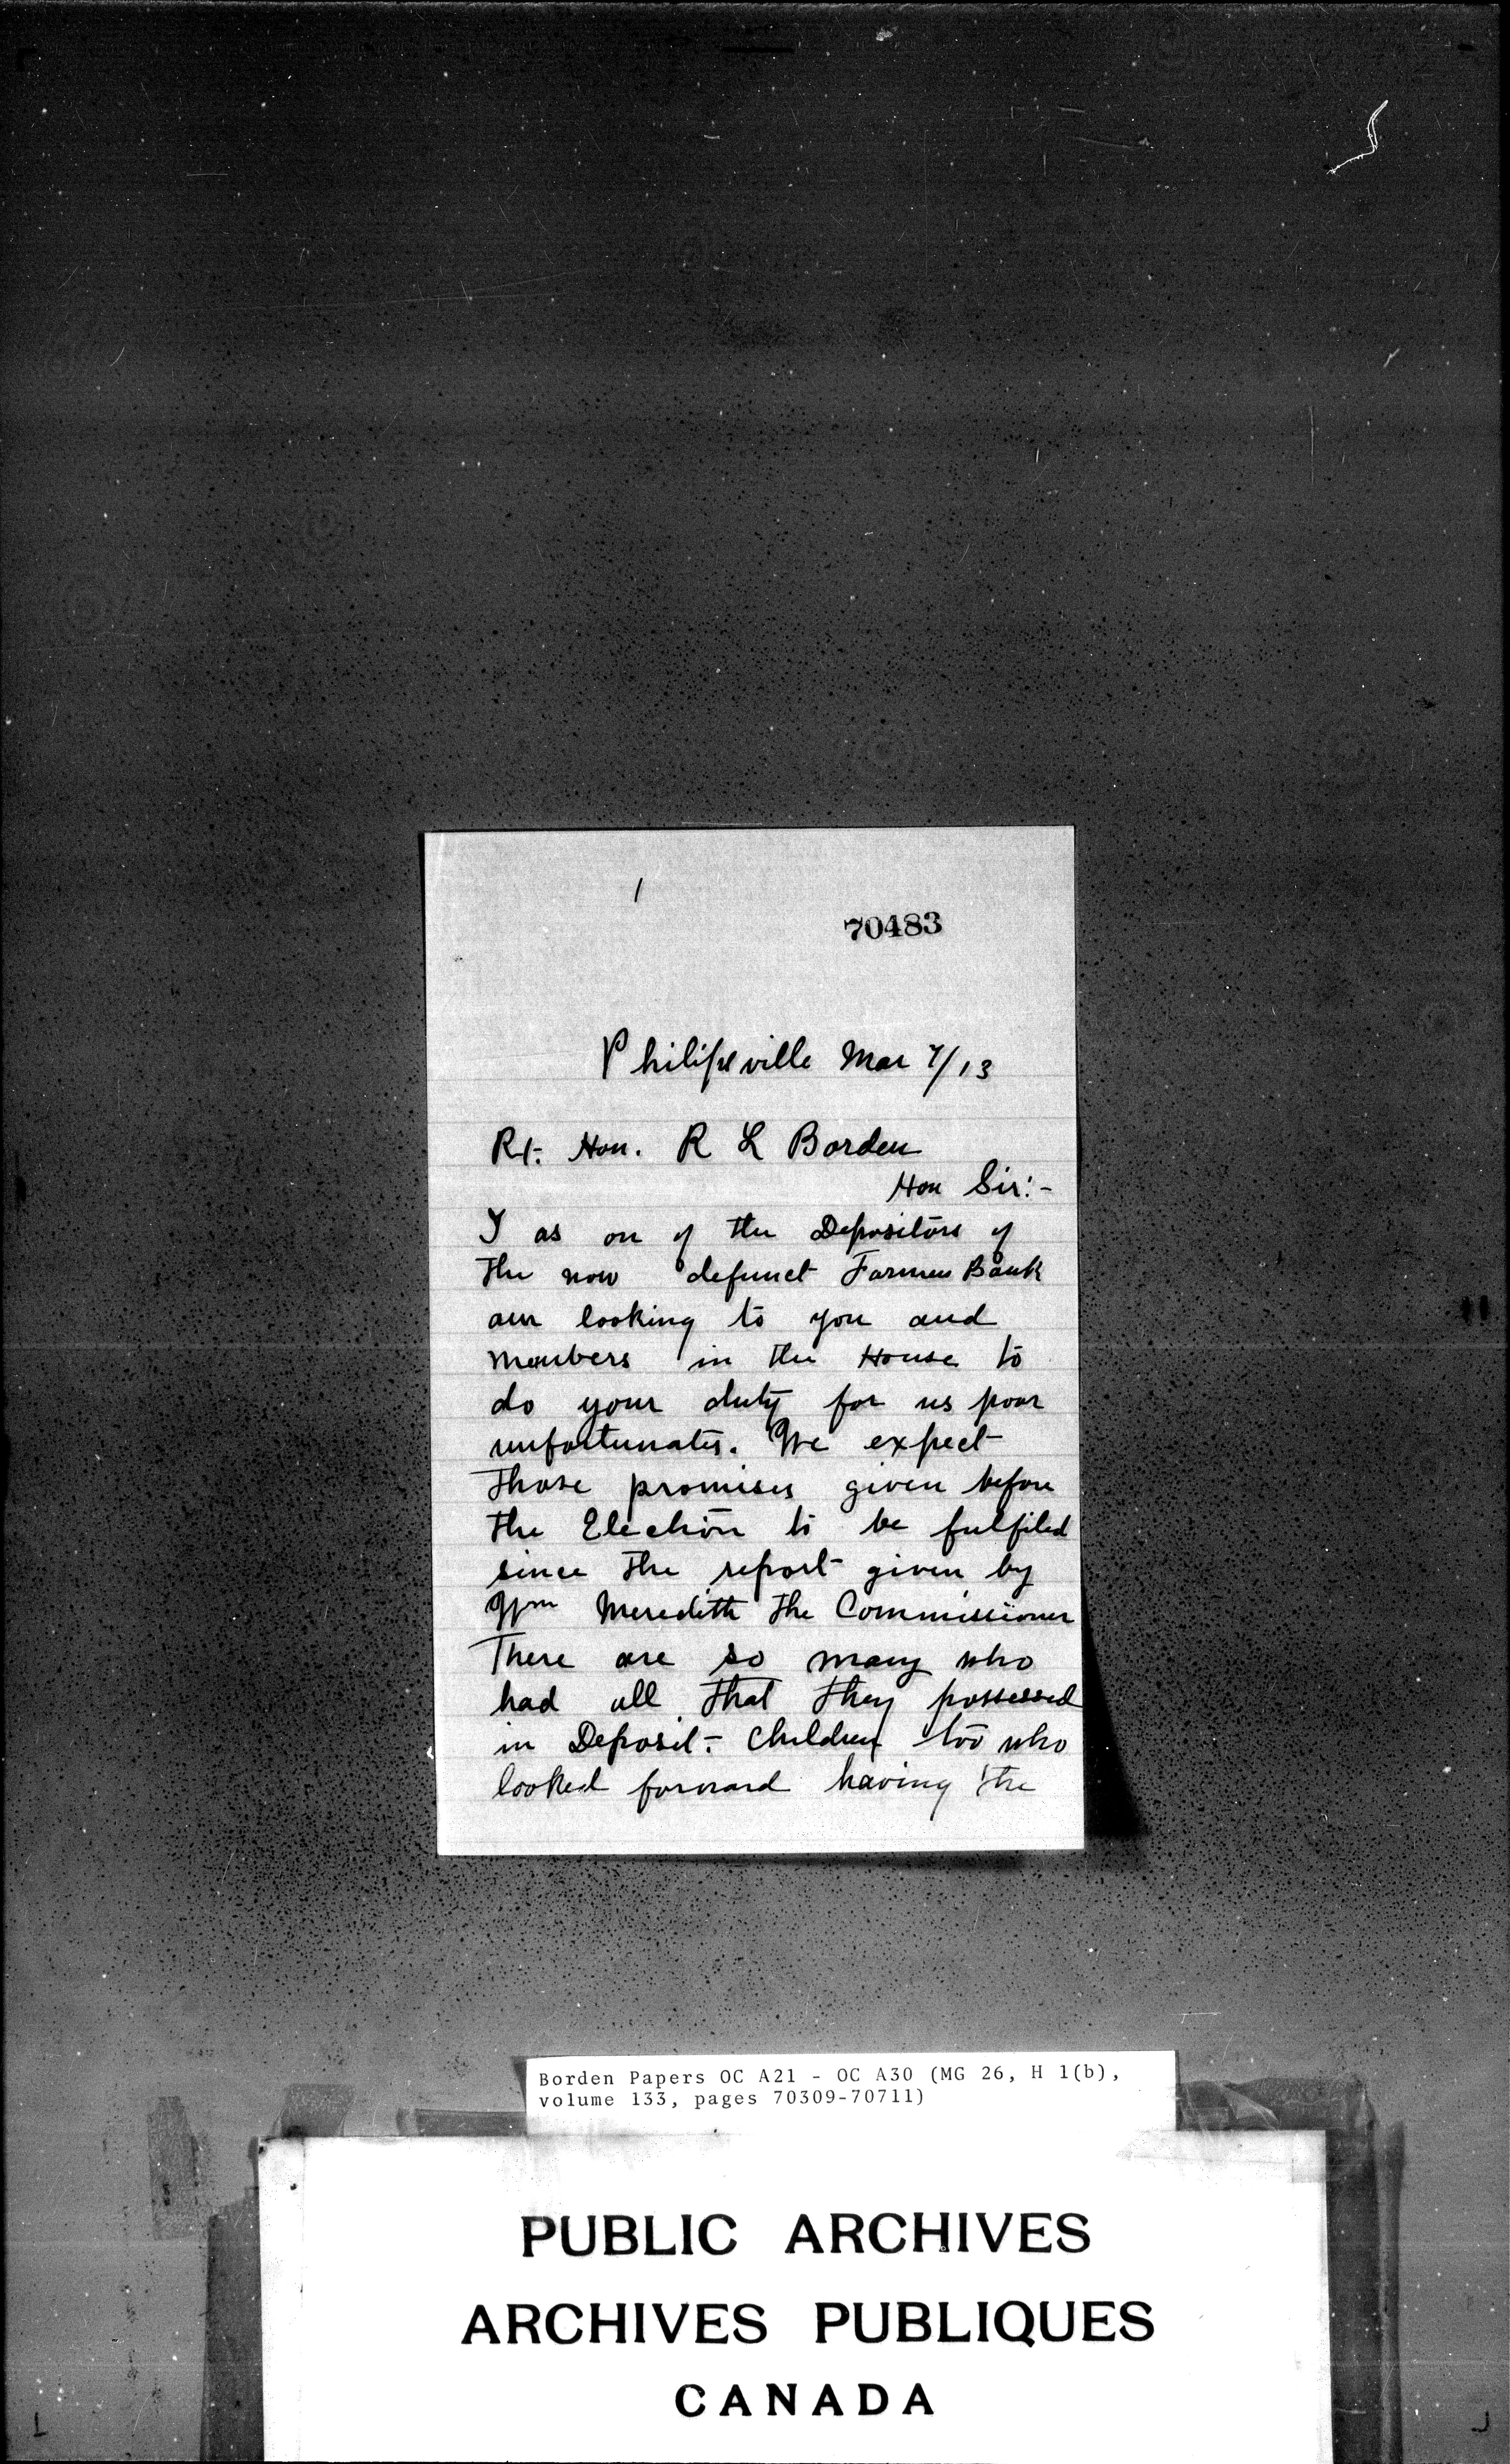 1
70483
Philipsville Mar 7/13
Rt. Hon. R L Borden
Hon Sir:-
I as on of the Depositors of
the now defunct Farmers Bank
am looking to you and
members in the House to
do your duty for us poor
unfortunates. We expect
those promises given before
the Election to be fulfiled
since the report given by
Wm Meredith the Commissioner
There are so many who
had all that they possessed
in Deposit - Children too who
looked forward having the
Borden Papers OC A21 - OC A30 (MG 26, H 1(b),
volume 133, pages 70309-70711)
PUBLIC ARCHIVES
ARCHIVES PUBLIQUES
CANADA